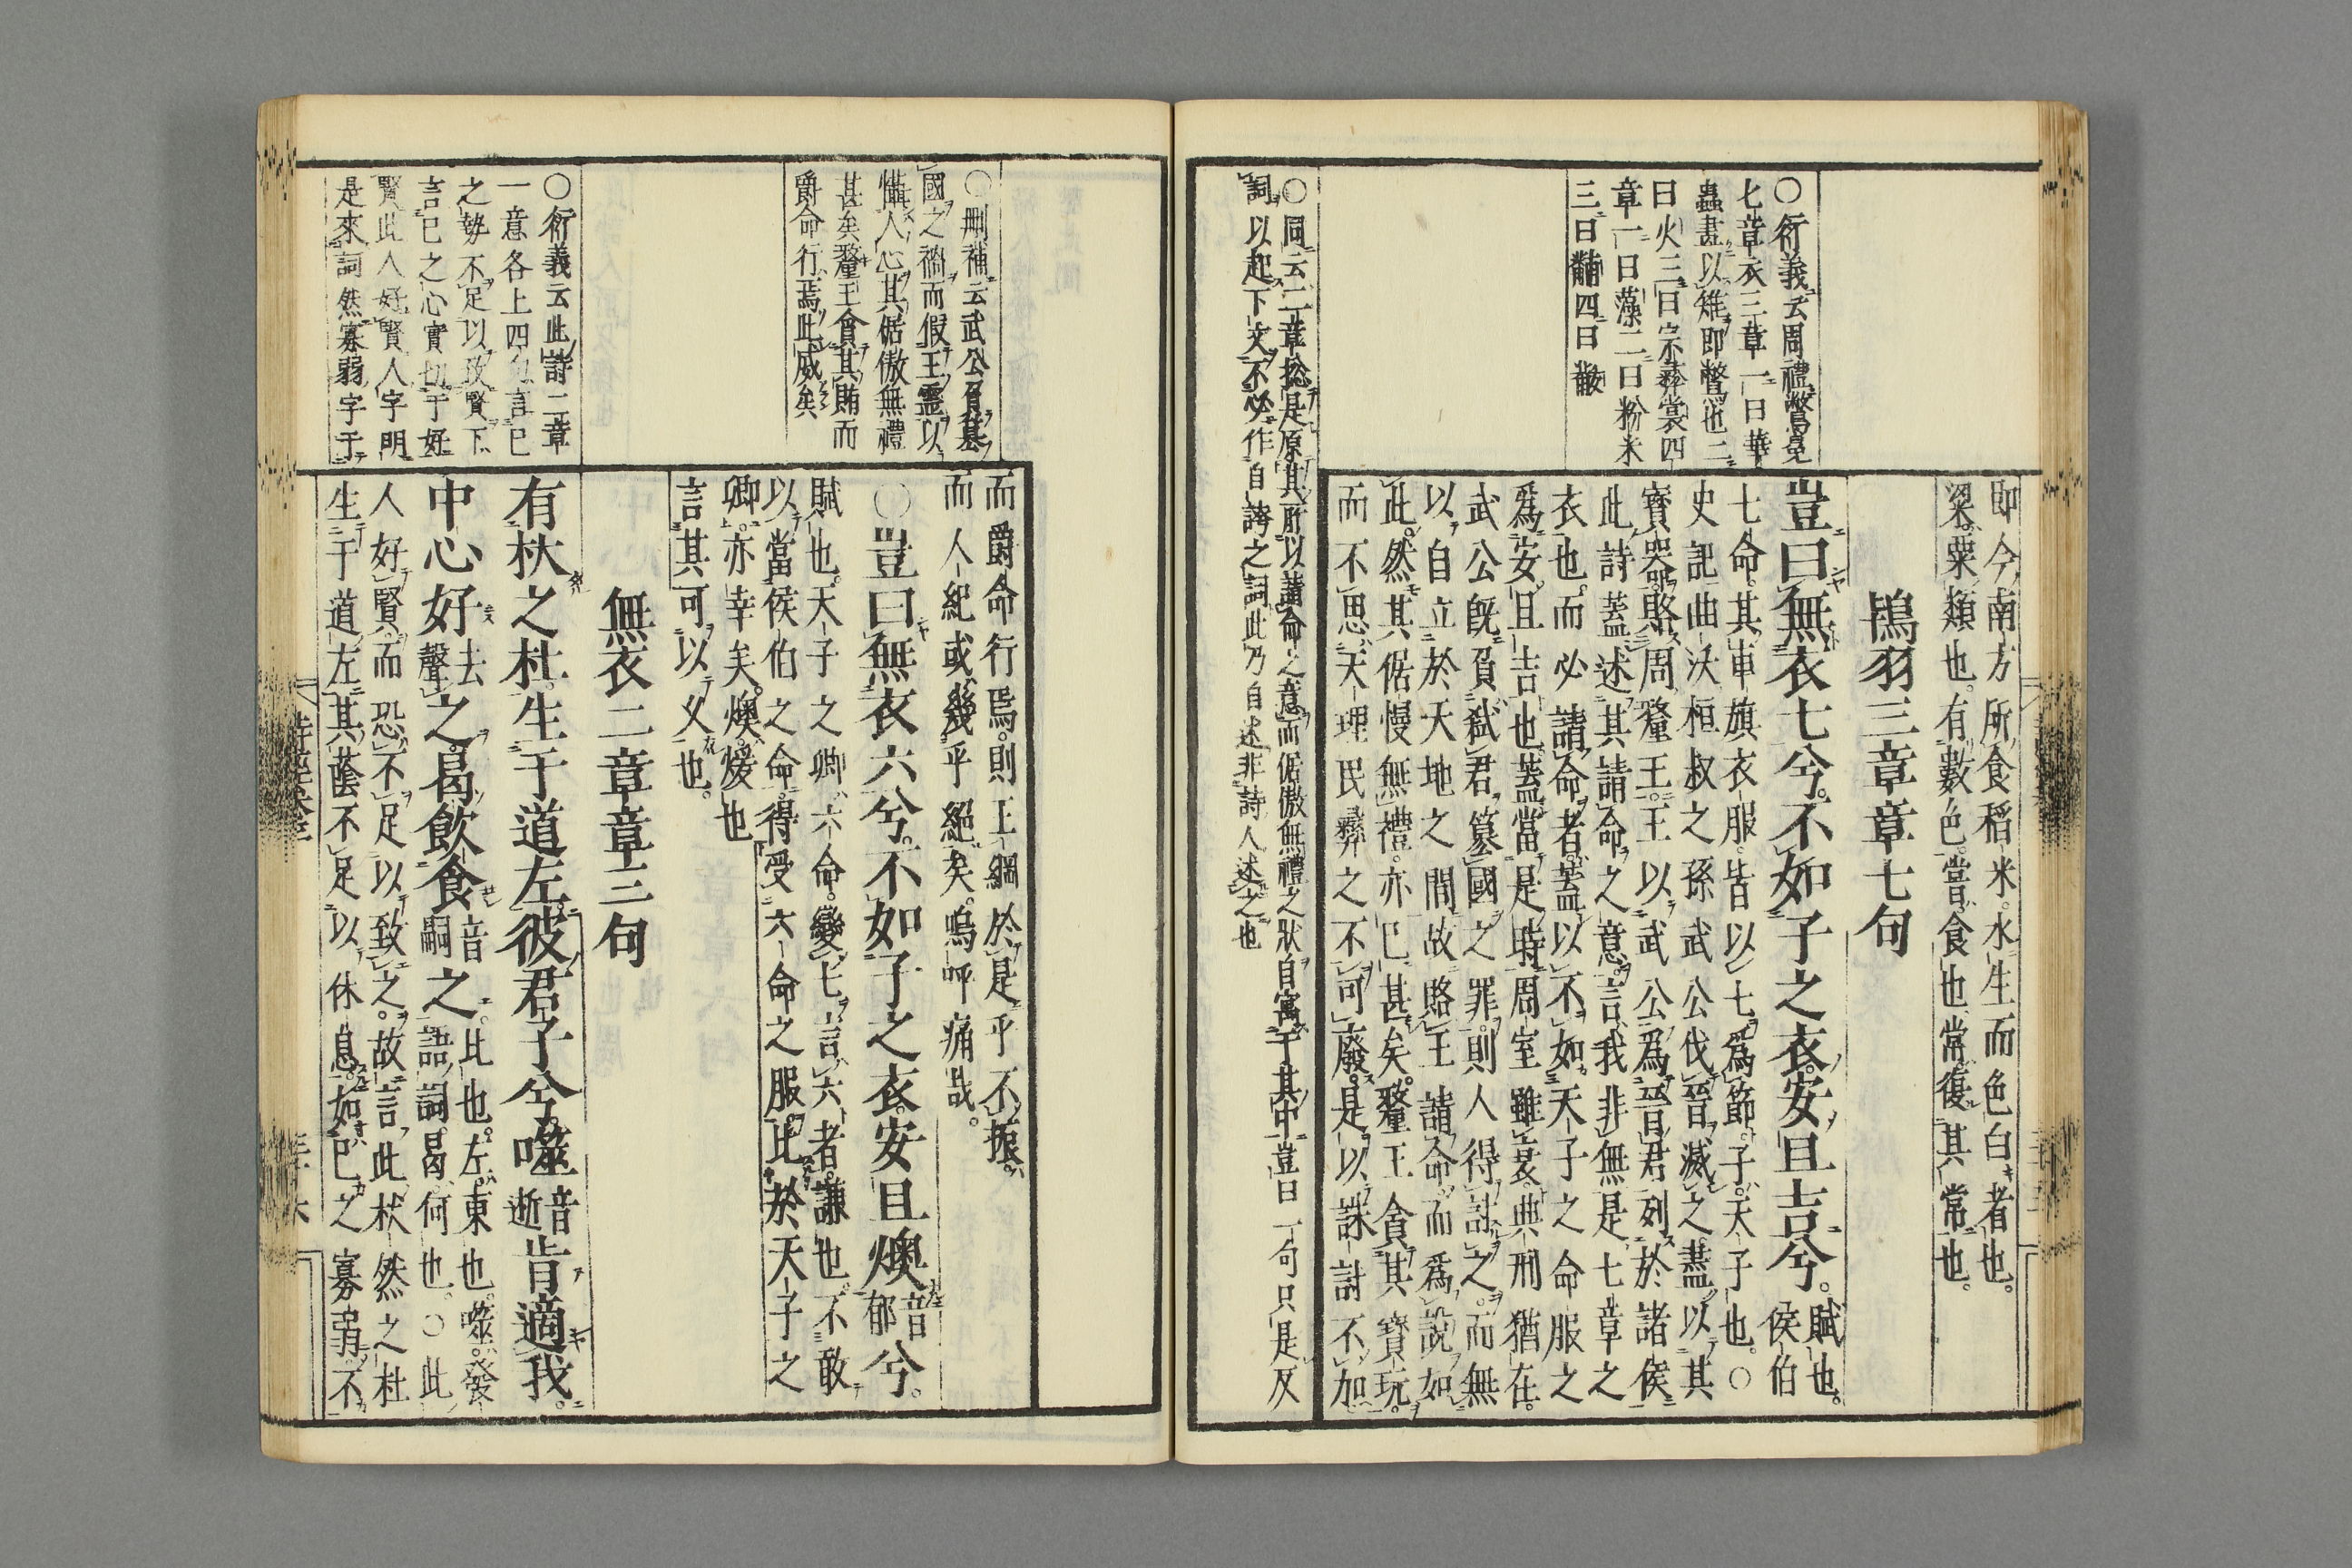 即今南方所食稻米。水生而色白者也。
粱。粟類也。有數色。嘗。食也。常。復其常也。
鴇羽三章章七句
豈曰無衣七兮。不如子之衣。安且吉兮。賦也。侯伯
七命。其車旗衣服。皆以七爲節。子。天子也。○
史記曲沃桓叔之孫武公伐晉滅之。盡以其
寶器賂周釐王。王以武公爲晉君列於諸侯
此詩蓋述其請命之意。言我非無是七章之
衣也。而必請命者。蓋以不如天子之命服之
爲安。且吉也。蓋當是時周室雖衰。典刑猶在。
武公旣負弑君簒國之罪。則人得討之。而無
以自立於天地之間。故賂王請命。而爲說如
此。然其倨慢無禮。亦已甚矣。釐王貪其寶玩。
而不思天理民彝之不可廢。是以誅討不加
○衍義云周禮鷩冕
七章衣三章一曰華
蟲畫以雉即鷩也二
曰火三曰宗彝裳四
章一曰藻二曰粉米
三曰黼四曰黻
○同云二章捴是原其所以請命之意而倨傲無禮之狀自寓于其中豈曰一句只是反
詞以起下文不必作自誇之詞此乃自述非詩人述之也
而爵命行焉。則王綱於是乎不振。
而人紀或幾乎絕矣。嗚呼痛哉。
○豈曰無衣六兮。不如子之衣。安且燠音郁兮。
賦也。天子之卿六命。變七言六者。謙也。不敢
以當侯伯之命。得受六命之服。比於天子之
卿。亦幸矣。燠。煖也
言其可以久也。
無衣二章章三句
有杕之杜。生于道左。彼君子兮。噬音逝肯適我。
中心好去聲之。曷飲食音嗣之。比也。左。東也。噬。發語詞。曷。何也。○此
人好賢。而恐不足以致之。故言此杕然之杜
生于道左。其蔭不足以休息。如己之寡弱。不
○刪補云武公負簒
國之禍而假王靈以
懾人心其倨傲無禮
甚矣釐王貪其賄而
爵命行焉此威矣
○衍義云此詩二章
一意各上四句言己
之勢不足以致賢下
言己之心實切于好
賢此人好賢人字明
是來詞然寡弱字于